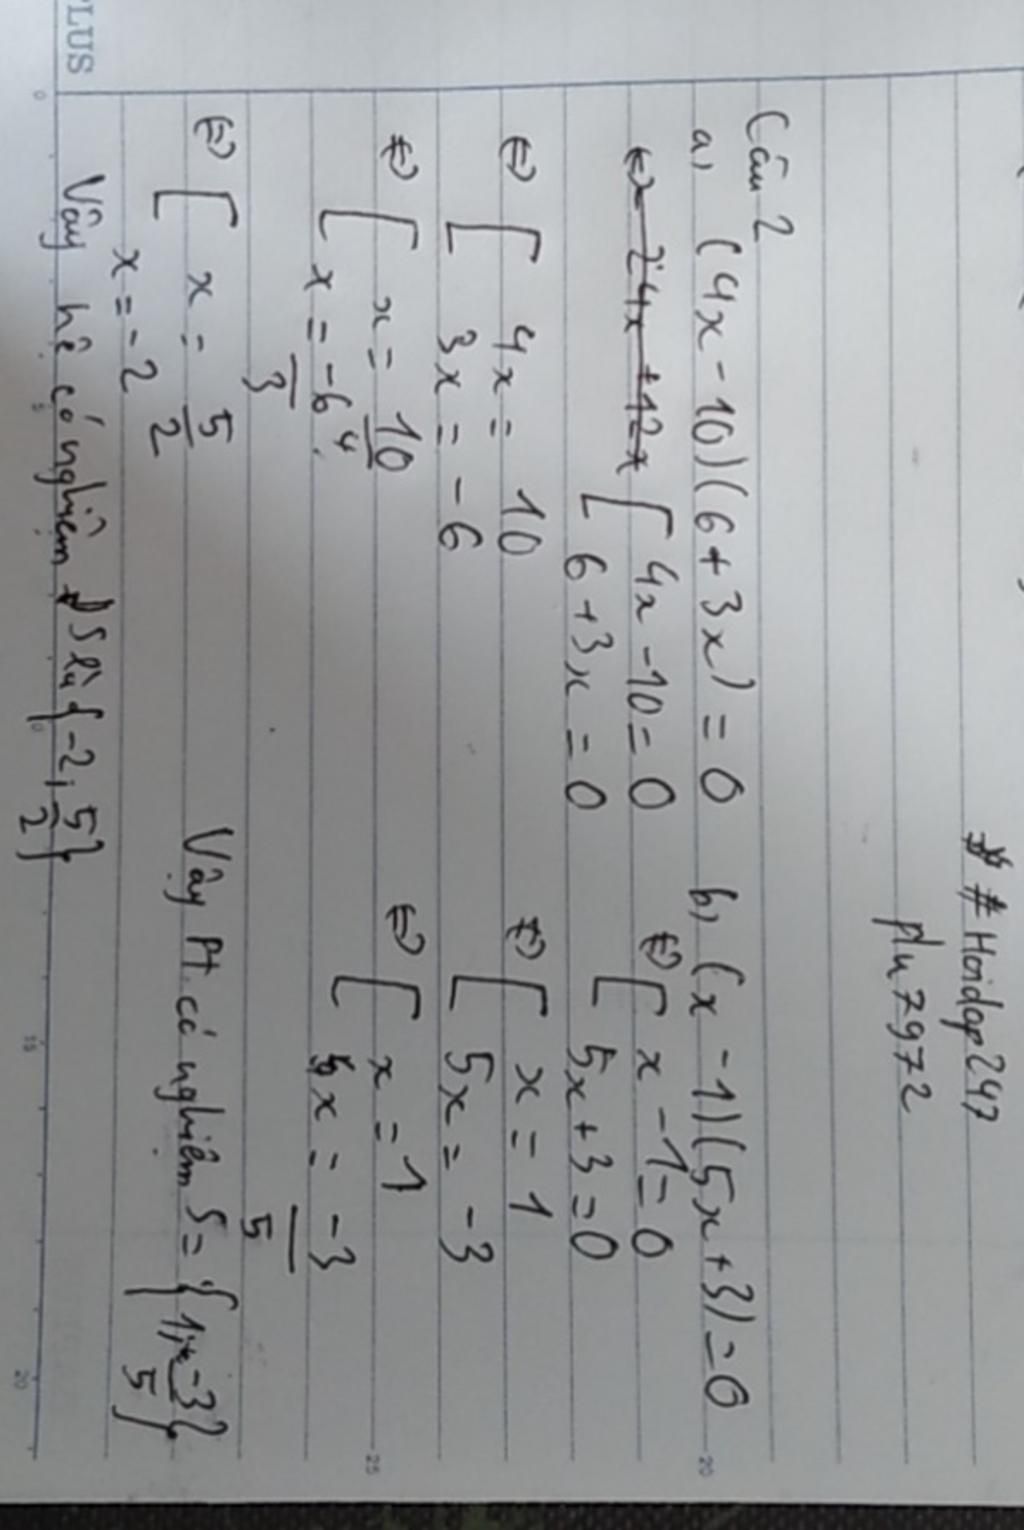 # Hoidap247
phu7972
Câu 2
a) (4x - 10)(6 + 3x) = 0
⇔ 24x + 12x [ 4x - 10 = 0
6 + 3x = 0
⇔ [ 4x = 10
3x = -6
⇔ [ x = 10/4
x = -6/3
⇔ [ x = 5/2
x = -2
Vây hê có nghiệm S là {-2; 5/2}
b) (x - 1)(5x + 3) = 0
⇔ [ x - 1 = 0
5x + 3 = 0
⇔ [ x = 1
5x = -3
⇔ [ x = 1
x = -3/5
Vậy Pt có nghiệm S = {1; -3/5}
PLUS
0
5
10
15
20
25
20